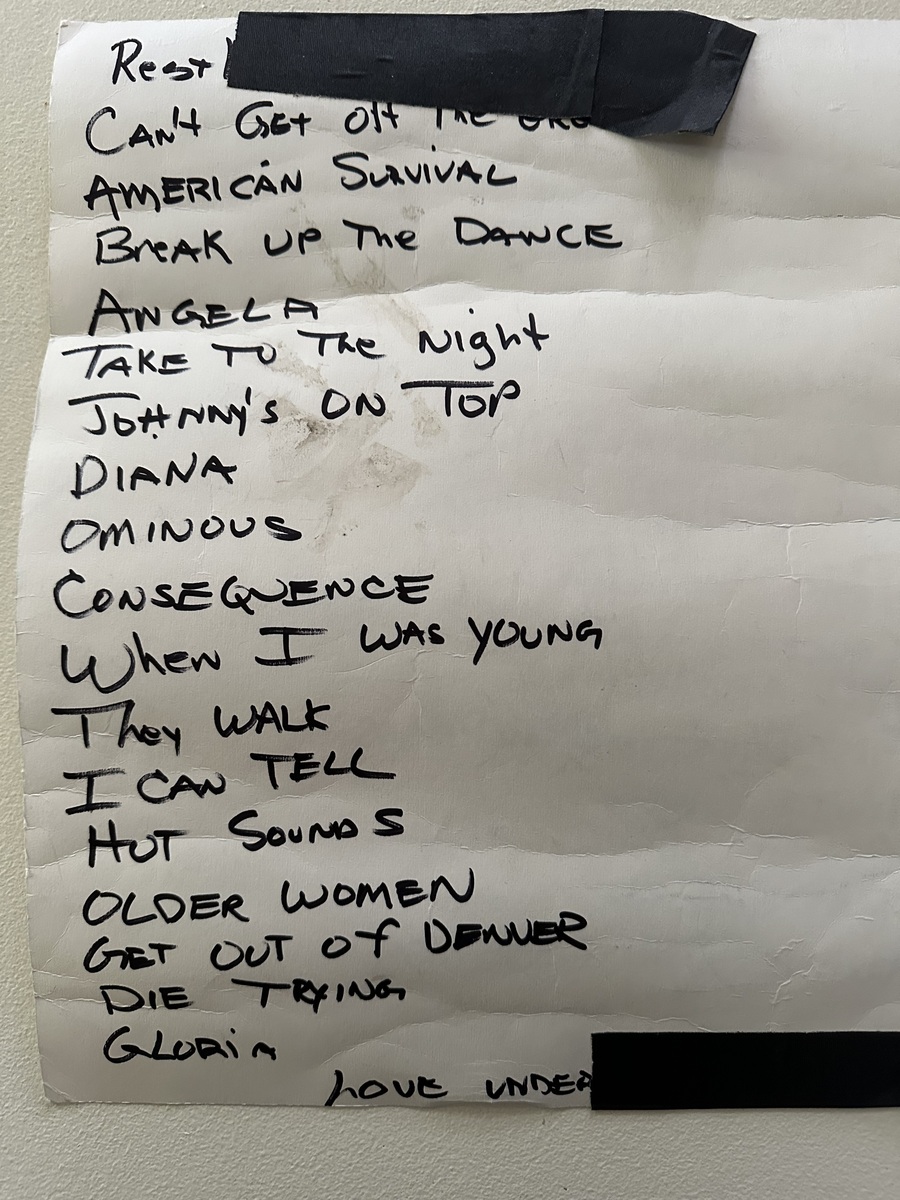 Rest
CAN'T GET Off The
AMERICAN SURVIVAL
BreAK UP The DANCE
ANGELA
TAKE TO The Night
JOHNNy's ON TOP
DIANA
OMINOUS
CONSEQUENCE
When I WAS YOUNG
They WALK
I CAN TELL
HOT SOUNDS
OLDER WOMEN
GET OUT Of DENVER
DIE TRYING
GLORiA
LOVE UNDER